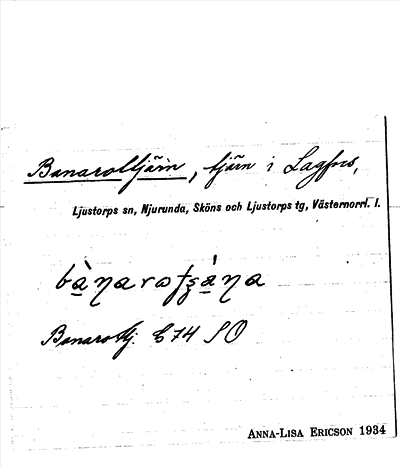 Banarotjärn, tjärn i Lagfors,
Ljustorps sn, Njurunda, Sköns och Ljustorps tg, Västernorrl. l.
Banarottj. E74 SO
ANNA-LISA ERICSON 1934